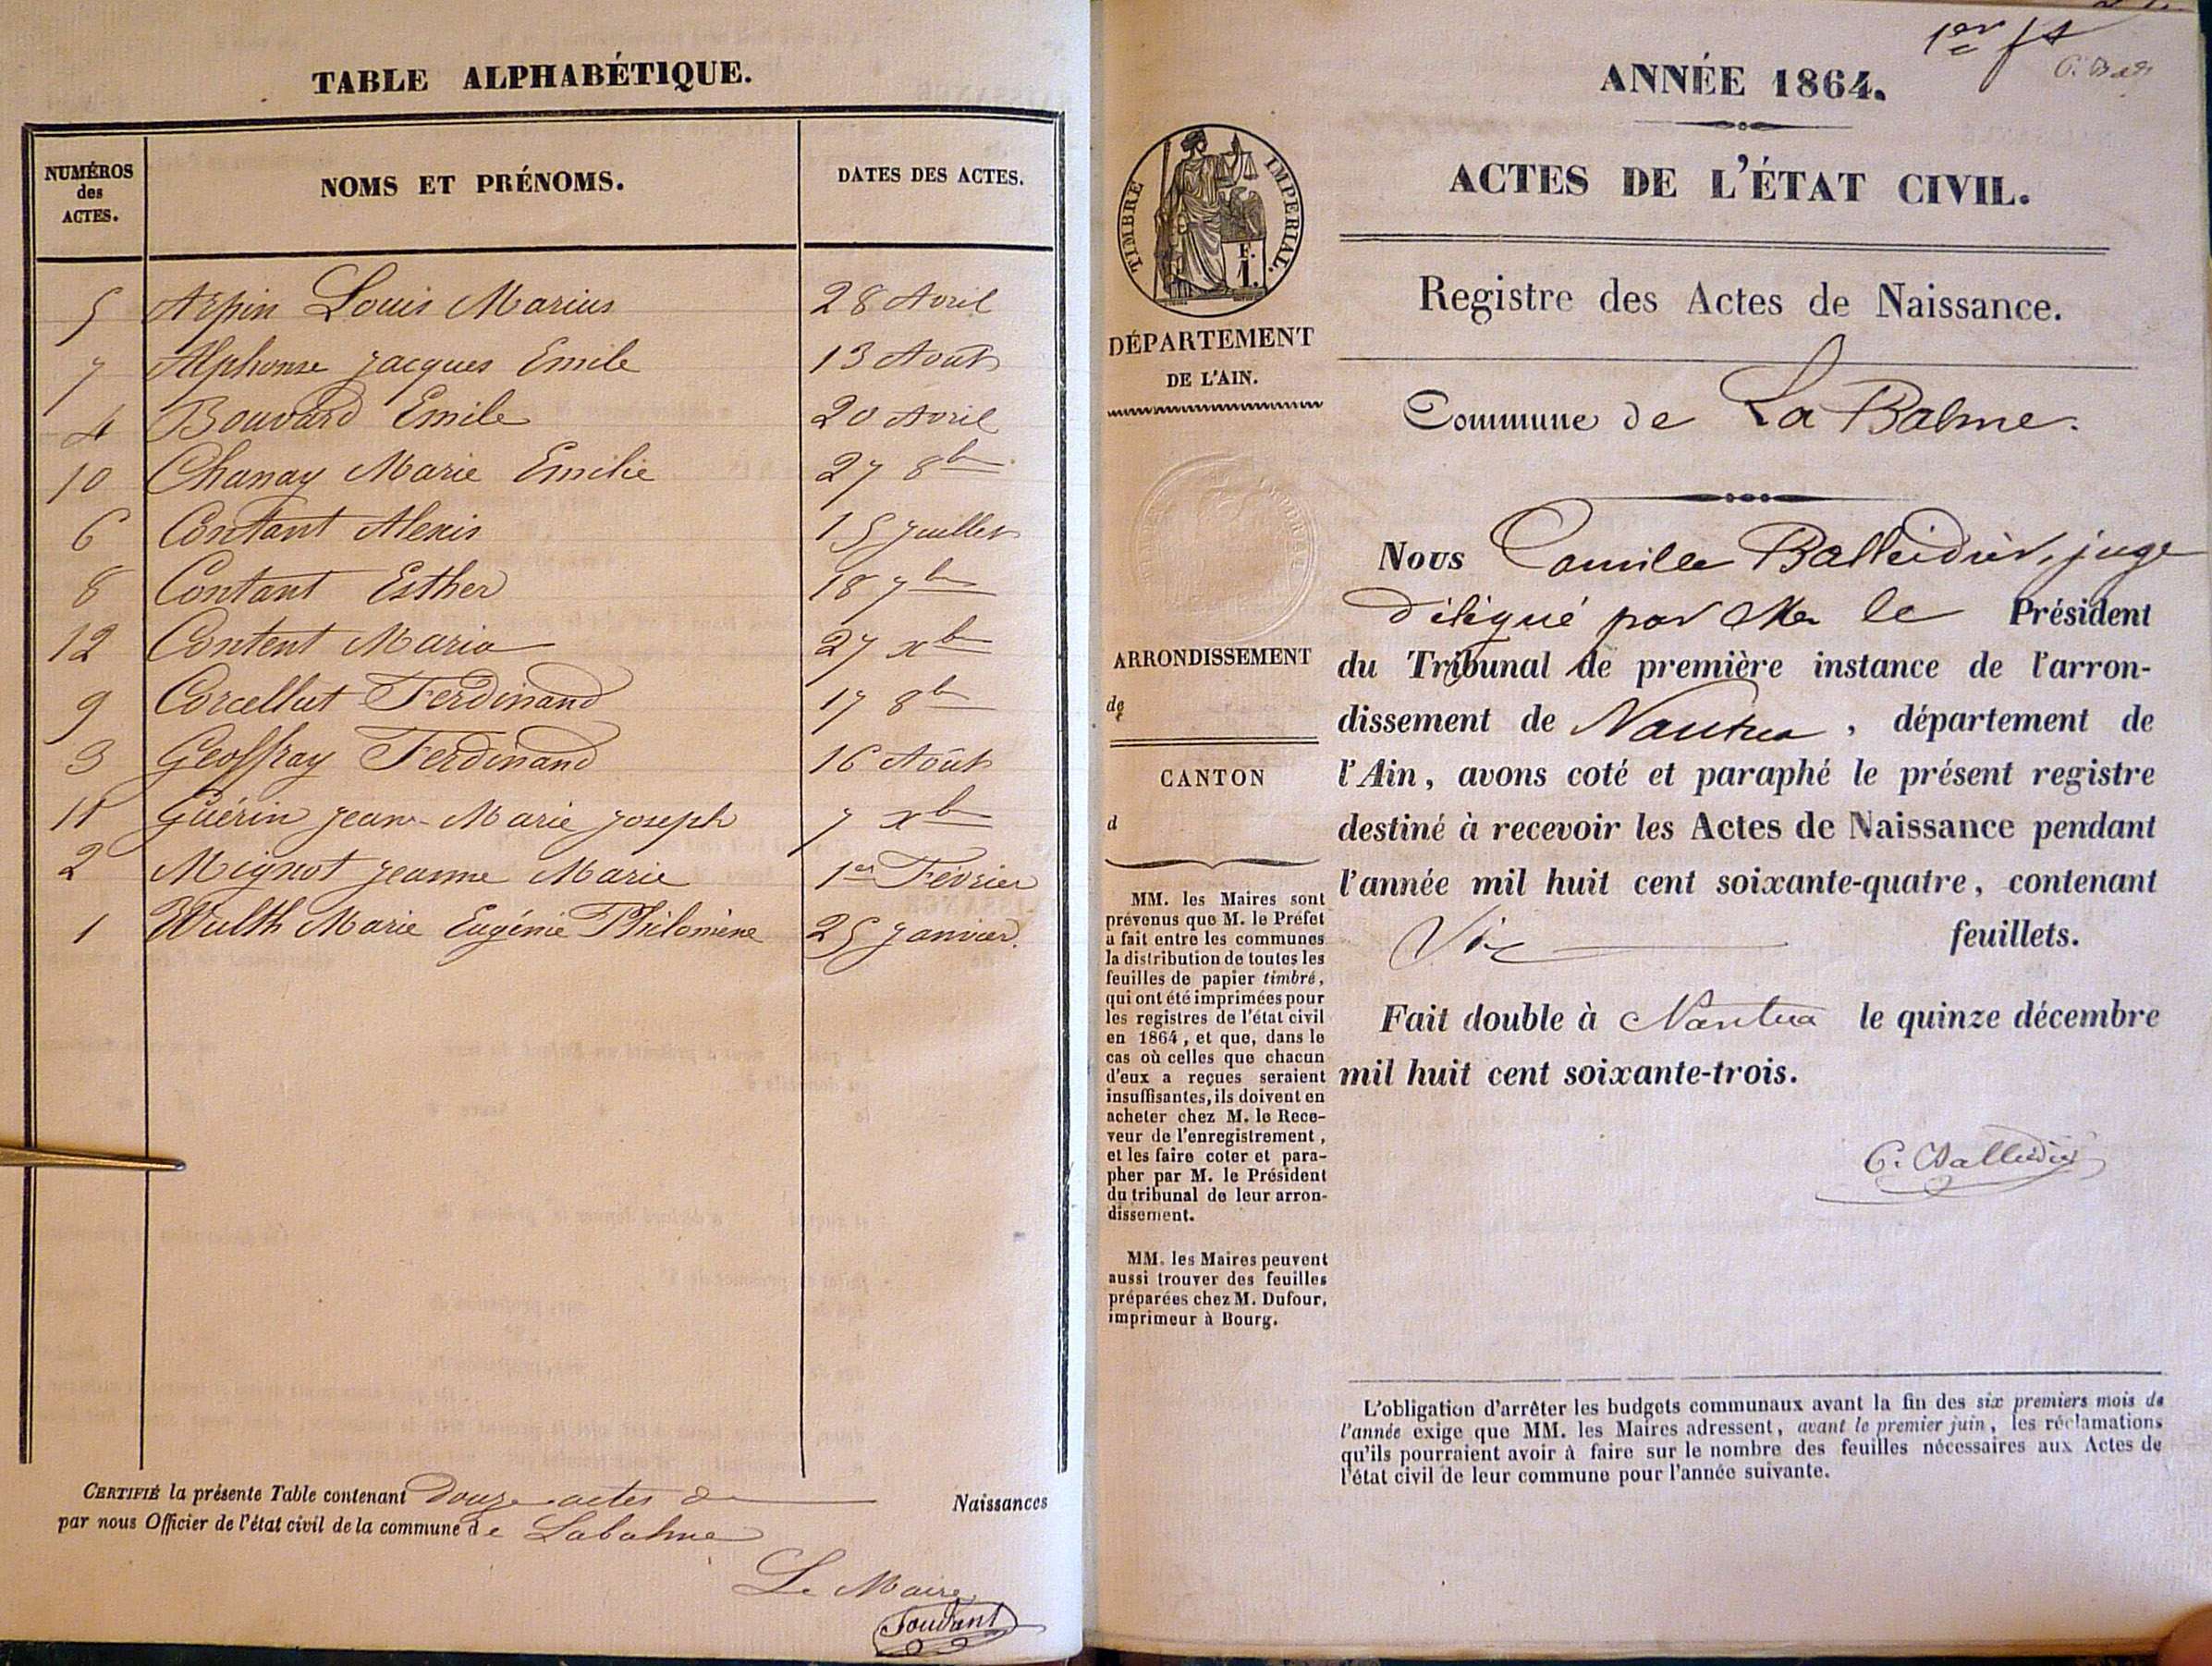 TABLE ALPHABÉTIQUE.
NUMÉROS des ACTES. NOMS ET PRÉNOMS. DATES DES ACTES.
5 Arpin Louis Marius 28 Avril
7 Alphonse Jacques Emile 13 Août
4 Bouvard Emile 20 Avril
10 Chanay Marie Emilie 27 8bre
6 Contant Alexis 15 Juillet
8 Contant Esther 18 7bre
12 Content Maria 27 xbre
9 Corcellut Ferdinand 17 8bre
3 Geoffray Ferdinand 16 Août
11 Guérin Jean-Marie Joseph 7 xbre
2 Mignot Jeanne Marie 1er Février
1 Wulth Marie Eugénie Philomène 25 Janvier.
CERTIFIÉ la présente Table contenant Douze actes de Naissances
par nous Officier de l'état civil de la commune de Labalme
Le Maire
Toudant
1er ft
ANNÉE 1864.
ACTES DE L'ÉTAT CIVIL.
Registre des Actes de Naissance.
Commune de La Balme.
Nous Camille Balleidier, juge
délégué par Mr le Président
du Tribunal de première instance de l'arron-
dissement de Nantua, département de
l'Ain, avons coté et paraphé le présent registre
destiné à recevoir les Actes de Naissance pendant
l'année mil huit cent soixante-quatre, contenant
Six feuillets.
Fait double à Nantua le quinze décembre
mil huit cent soixante-trois.
C. Balleidier
TIMBRE IMPERIAL.
F.
1.
DÉPARTEMENT
DE L'AIN.
ARRONDISSEMENT
de
CANTON
d
MM. les Maires sont
prévenus que M. le Préfet
a fait entre les communes
la distribution de toutes les
feuilles de papier timbré,
qui ont été imprimées pour
les registres de l'état civil
en 1864, et que, dans le
cas où celles que chacun
d'eux a reçues seraient
insuffisantes, ils doivent en
acheter chez M. le Rece-
veur de l'enregistrement,
et les faire coter et para-
pher par M. le Président
du tribunal de leur arron-
dissement.
MM. les Maires peuvent
aussi trouver des feuilles
préparées chez M. Dufour,
imprimeur à Bourg.
L'obligation d'arrêter les budgets communaux avant la fin des six premiers mois de
l'année exige que MM. les Maires adressent, avant le premier juin, les réclamations
qu'ils pourraient avoir à faire sur le nombre des feuilles nécessaires aux Actes de
l'état civil de leur commune pour l'année suivante.